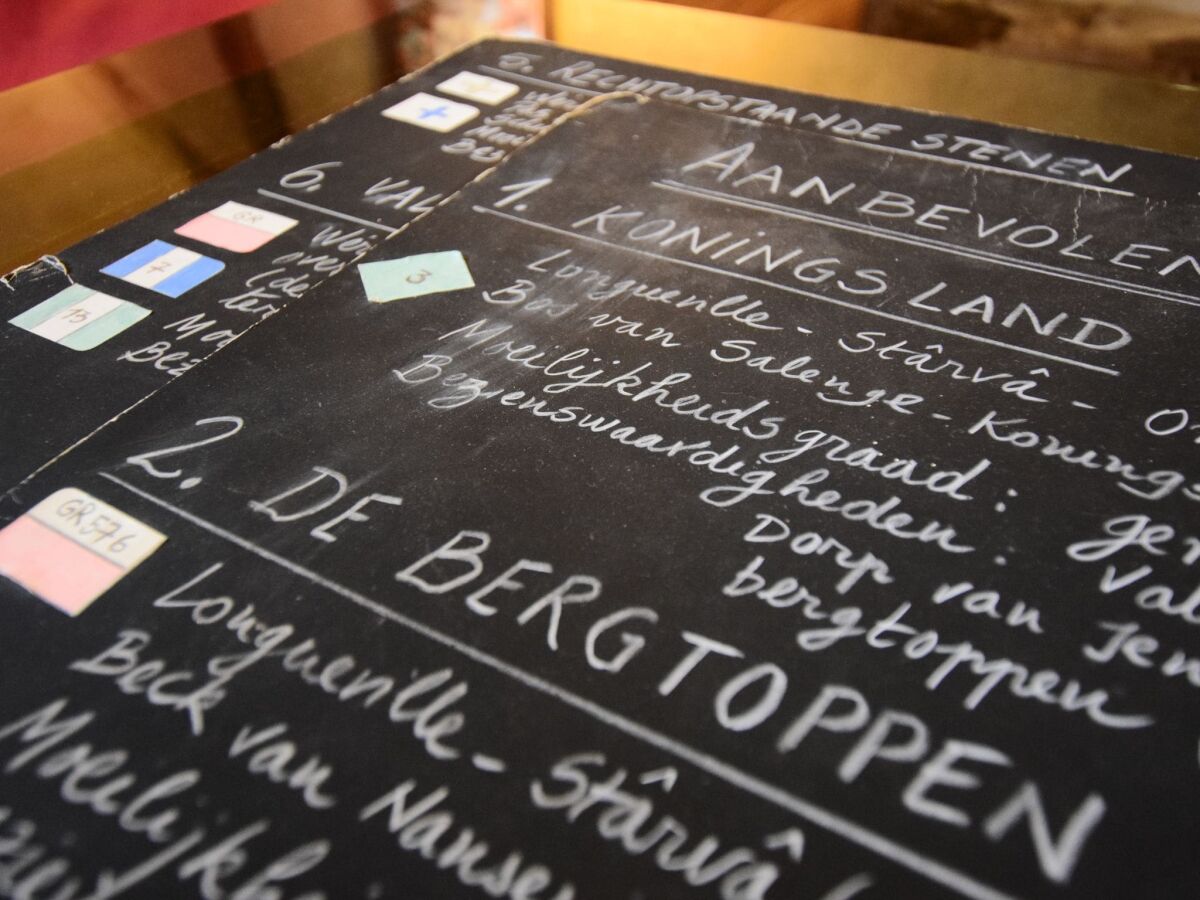 5. RECHTOPSTAANDE STENEN
6. VAL
GR
7
13
AANBEVOLEN
1. KONINGSLAND
3
Longueville - Stârvâ -
Bos van Salenge - Konings
Moeilijkheidsgraad : ge
Bezienswaardigheden : Val
Dorp van Jen
bergtoppen
2. DE BERGTOPPEN
GR576
Longueville - Stârvâ
Beck van Nanse
Moeilijkh